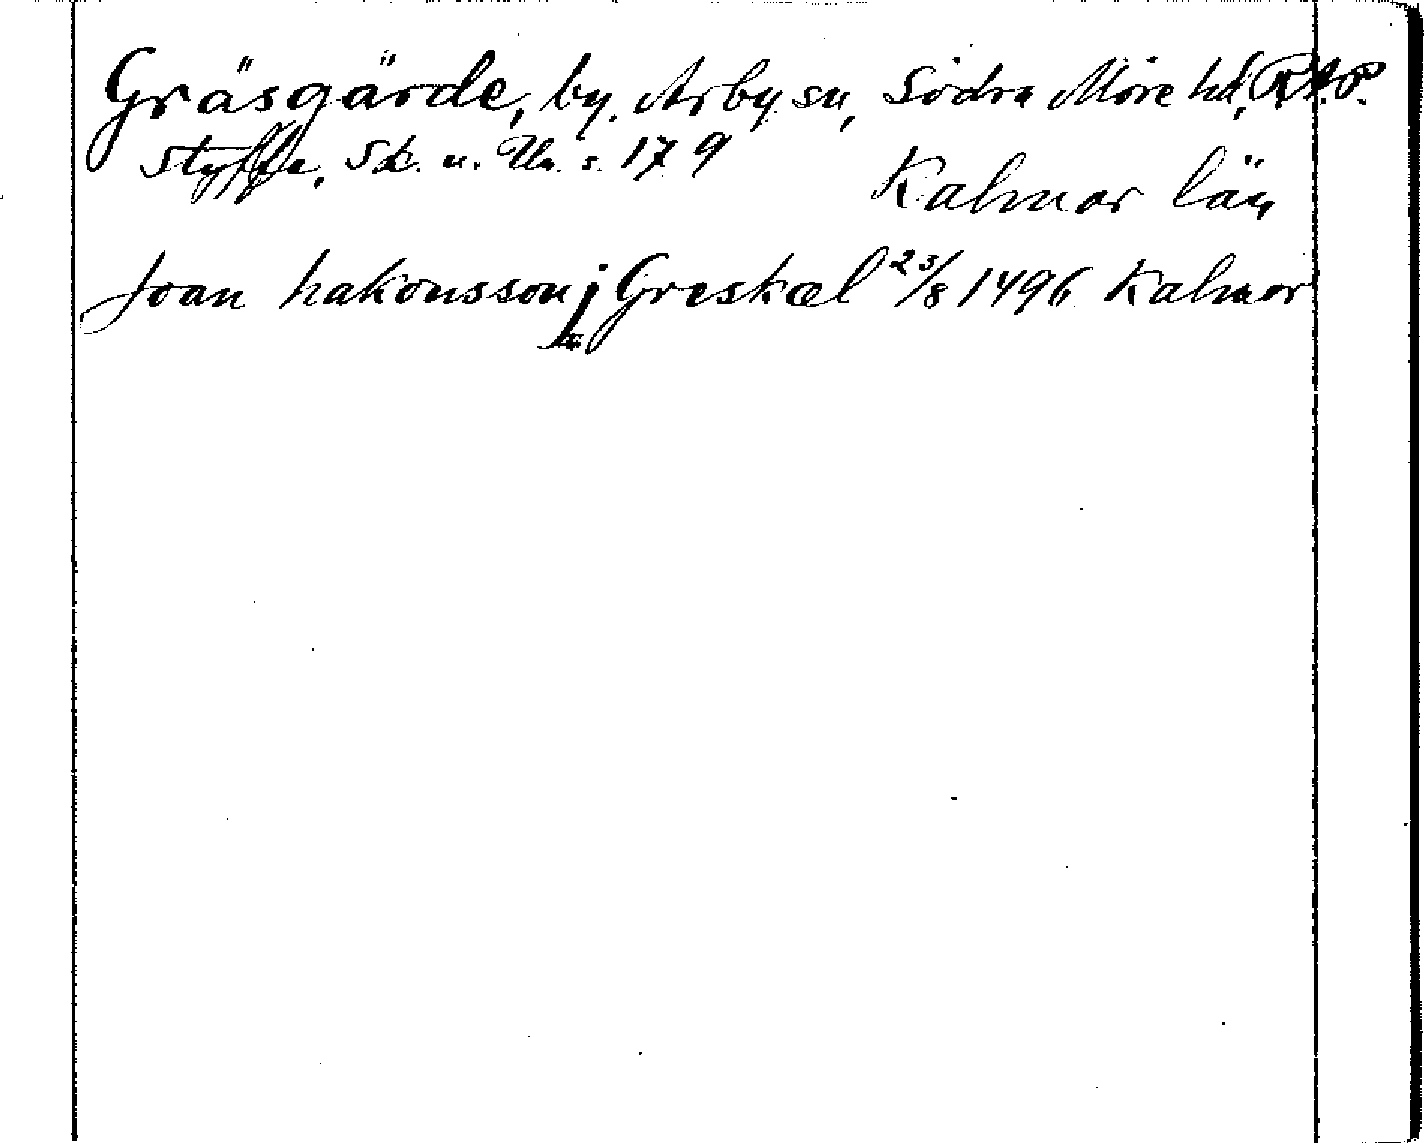 Gräsgärde, by. Arby sn, Södra Möre hd, RAP.
Styffe, Sk. u. Un. s. 179
Kalmar län
Joan hakonsson j Greskæl 23/8 1496 Kalmar